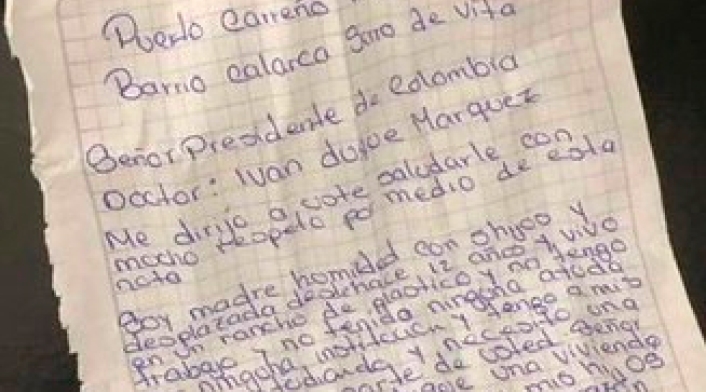 Puerto Carreño
Barrio calarca giro de vita
Señor Presidente de Colombia
Doctor: Ivan duque Marquez
Me dirijo a uste saludarle con
mocho respeto por medio de esta
nota
Soy madre homilde con 9 hijos y
desplazada desde hace 12 años y vivo
en un rancho de plastico y no tengo
trabajo y no tenido ninguna ayuda
ninguna institucion y tengo a mis
estudiando y necesito una
parte de usted Señor
una vivienda
mis hijos